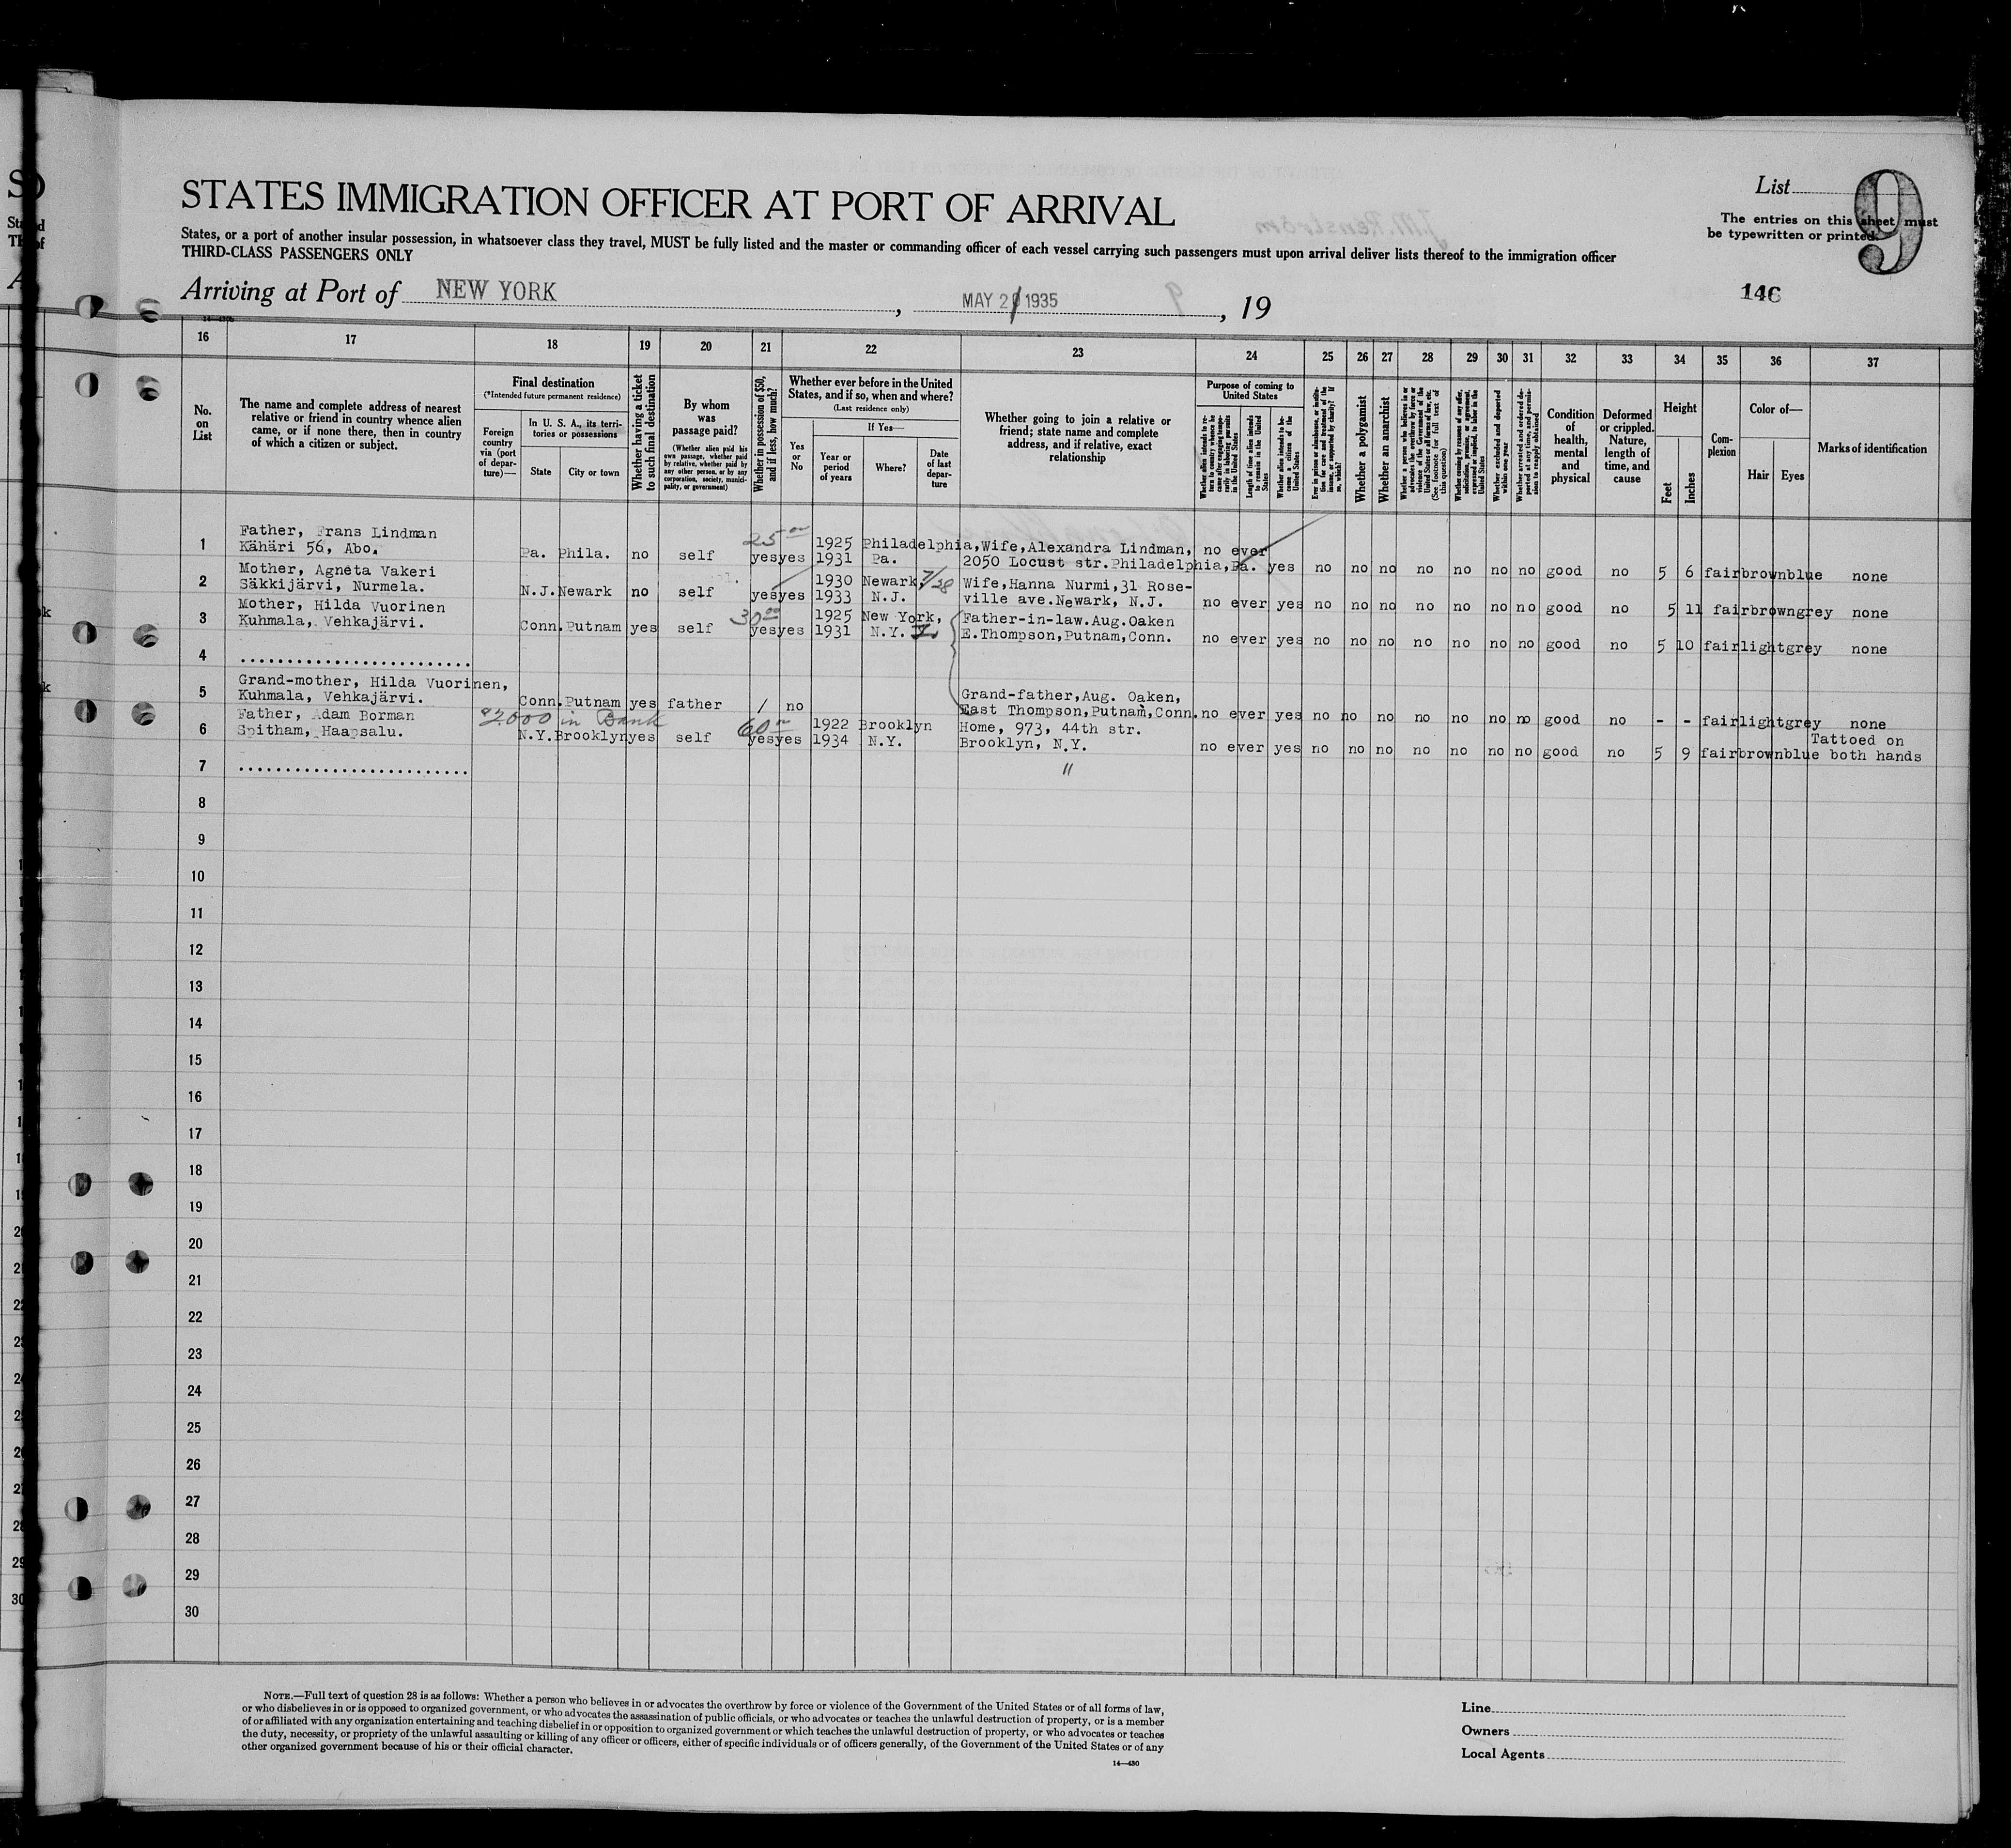 STATES IMMIGRATION OFFICER AT PORT OF ARRIVAL
List
9
The entries on this sheet must
be typewritten or printed.
States, or a port of another insular possession, in whatsoever class they travel, MUST be fully listed and the master or commanding officer of each vessel carrying such passengers must upon arrival deliver lists thereof to the immigration officer
THIRD-CLASS PASSENGERS ONLY
Arriving at Port of NEW YORK, MAY 21 1935, 19
146
16 17 18 19 20 21 22 23 24 25 26 27 28 29 30 31 32 33 34 35 36 37
No.
on
List
The name and complete address of nearest
relative or friend in country whence alien
came, or if none there, then in country
of which a citizen or subject.
Final destination
(*Intended future permanent residence)
Foreign
country
via (port
of depar-
ture)—
In U. S. A., its terri-
tories or possessions
State
City or town
Whether having a ticket
to such final destination
By whom
was
passage paid?
(Whether alien paid his
own passage, whether paid
by relative, whether paid by
any other person, or by any
corporation, society, munici-
pality, or government)
Whether in possession of $50,
and if less, how much?
Whether ever before in the United
States, and if so, when and where?
(Last residence only)
Yes
or
No
If Yes—
Year or
period
of years
Where?
Date
of last
depar-
ture
Whether going to join a relative or
friend; state name and complete
address, and if relative, exact
relationship
Purpose of coming to
United States
Whether alien intends to re-
turn to country whence he
came after engaging tempo-
rarily in laboring pursuits
in the United States
Length of time alien intends
to remain in the United
States
Whether alien intends to be-
come a citizen of the
United States
Ever in prison or almshouse, or institu-
tion for care and treatment of the
insane, or supported by charity? If
so, which?
Whether a polygamist
Whether an anarchist
Whether a person who believes in or
advocates the overthrow by force or
violence of the Government of the
United States or all forms of law, etc.
(See footnote for full text of
this question)
Whether coming by reason of any offer,
solicitation, promise, or agreement,
expressed or implied, to labor in the
United States
Whether excluded and deported
within one year
Whether arrested and ordered de-
ported at any time, and permis-
sion to reapply obtained
Condition
of
health,
mental
and
physical
Deformed
or crippled.
Nature,
length of
time, and
cause
Height
Feet
Inches
Com-
plexion
Color of—
Hair
Eyes
Marks of identification
1 Father, Frans Lindman
Kähäri 56, Abo. Pa. Phila. no self 25 00 yes yes 1925 1931 Philadelphia, Pa. Wife, Alexandra Lindman,
2050 Locust str. Philadelphia, Pa. no ever yes no no no no no no no good no 5 6 fair brown blue none
2 Mother, Agneta Vakeri
Säkkijärvi, Nurmela. N.J. Newark no self yes yes 1930 1933 Newark, N.J. 7/28 Wife, Hanna Nurmi, 31 Rose-
ville ave. Newark, N.J. no ever yes no no no no no no no good no 5 11 fair brown grey none
3 Mother, Hilda Vuorinen
Kuhmala, Vehkajärvi. Conn. Putnam yes self 30 00 yes yes 1925 1931 New York, N.Y. Father-in-law. Aug. Oaken
E. Thompson, Putnam, Conn. no ever yes no no no no no no no good no 5 10 fair light grey none
4 .........................
5 Grand-mother, Hilda Vuorinen,
Kuhmala, Vehkajärvi. Conn. Putnam yes father / no Grand-father, Aug. Oaken,
East Thompson, Putnam, Conn. no ever yes no no no no no no no good no - - fair light grey none
6 Father, Adam Borman
Spitham, Haapsalu. $2000 in Bank N.Y. Brooklyn yes self 60 00 yes yes 1922 1934 Brooklyn N.Y. Home, 973, 44th str.
Brooklyn, N.Y. no ever yes no no no no no no no good no 5 9 fair brown blue Tattoed on
both hands
7 ......................... "
8
9
10
11
12
13
14
15
16
17
18
19
20
21
22
23
24
25
26
27
28
29
30
NOTE.—Full text of question 28 is as follows: Whether a person who believes in or advocates the overthrow by force or violence of the Government of the United States or of all forms of law,
or who disbelieves in or is opposed to organized government, or who advocates the assassination of public officials, or who advocates or teaches the unlawful destruction of property, or is a member
of or affiliated with any organization entertaining and teaching disbelief in or opposition to organized government or which teaches the unlawful destruction of property, or who advocates or teaches
the duty, necessity, or propriety of the unlawful assaulting or killing of any officer or officers, either of specific individuals or of officers generally, of the Government of the United States or of any
other organized government because of his or their official character.
14—430
Line
Owners
Local Agents